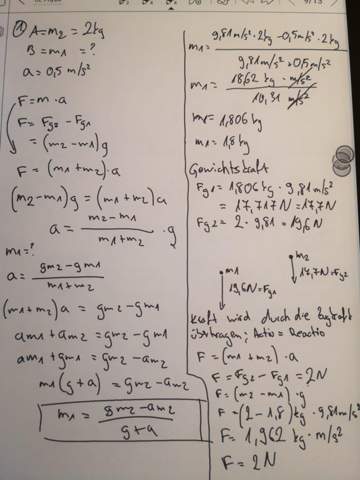 ① A=m2 = 2kg
B=m1 = ?
a = 0,5 m/s²
F=m·a
F= Fg2 - Fg1
= (m2-m1)g
F = (m1+m2)·a
(m2-m1)g = (m1+m2)a
a = m2-m1 / m1+m2 · g
m1=?
a = gm2-gm1 / m1+m2
(m1+m2)a = gm2-gm1
am1+am2 = gm2-gm1
am1+gm1 = gm2-am2
m1(g+a) = gm2-am2
m1 = gm2-am2 / g+a
m1 = 9,81m/s²·2kg - 0,5m/s²·2kg / 9,81m/s²+0,5m/s²
m1 = 18,62 kg·m/s² / 10,31 m/s²
m1 = 1,806kg
m1 = 1,8kg
Gewichtskraft
Fg1 = 1,806kg · 9,81m/s²
= 17,717N = 17,7N
Fg2 = 2·9,81 = 19,6N
m1
19,6N=Fg1
m2
17,7N=Fg2
Kraft wird durch die Zugkraft
übertragen; Actio = Reactio
F = (m1+m2)·a
F = Fg2 - Fg1 = 2N
F = (m2-m1)·g
F = (2-1,8)kg · 9,81m/s²
F = 1,962 kg·m/s²
F = 2N